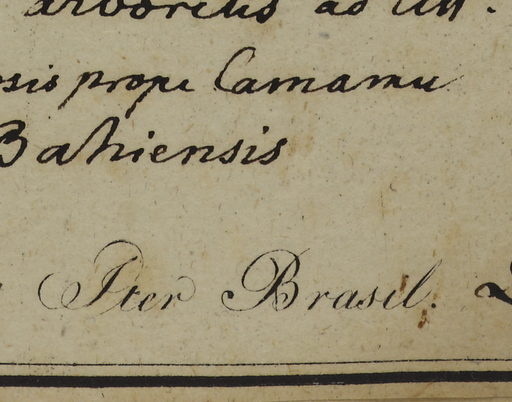 arboretis ad
prope Camamu
Bahiensis
Iter Brasil.